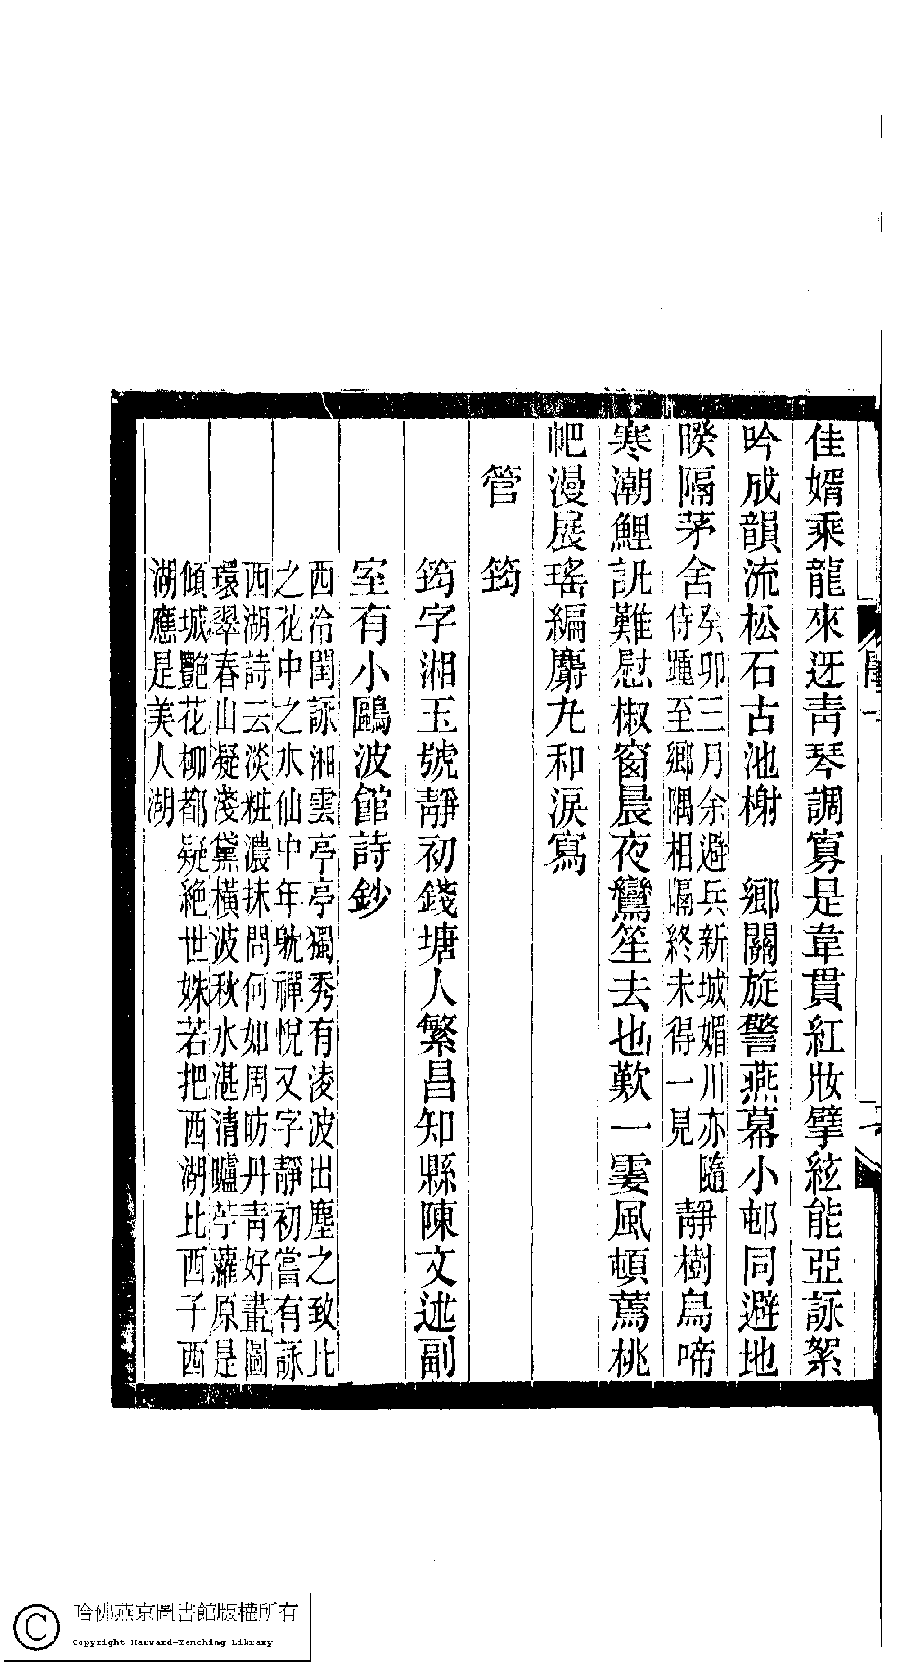 佳婿乘龍來迓靑琴調寡是韋貫紅妝擘絃能亞詠絮
吟成韻流松石古池榭　鄉關旋警燕幕小邨同避地
睽隔茅舍癸卯三月余避兵新城媚川亦隨侍踵至鄉隅相隔終未得一見　靜樹烏啼
寒潮鯉訊難慰椒窗晨夜鸞笙去也歎一霎風頓蔫桃
帊漫展瑤編麝丸和淚寫
管筠
筠字湘玉號靜初錢塘人繁昌知縣陳文述副
室有小鷗波館詩鈔
西泠閨詠湘雲亭亭獨秀有淩波出塵之致比
之花中之水仙中年耽禪悅又字靜初嘗有詠
西湖詩云淡粧濃抹問何如周昉丹靑好畫圖
環翠春山凝淺黛橫波秋水湛清矑苧蘿原是
傾城艷花柳都疑絕世姝若把西湖比西子西
湖應是美人湖
哈佛燕京圖書館版權所有
Copyright Harvard-Yenching Library